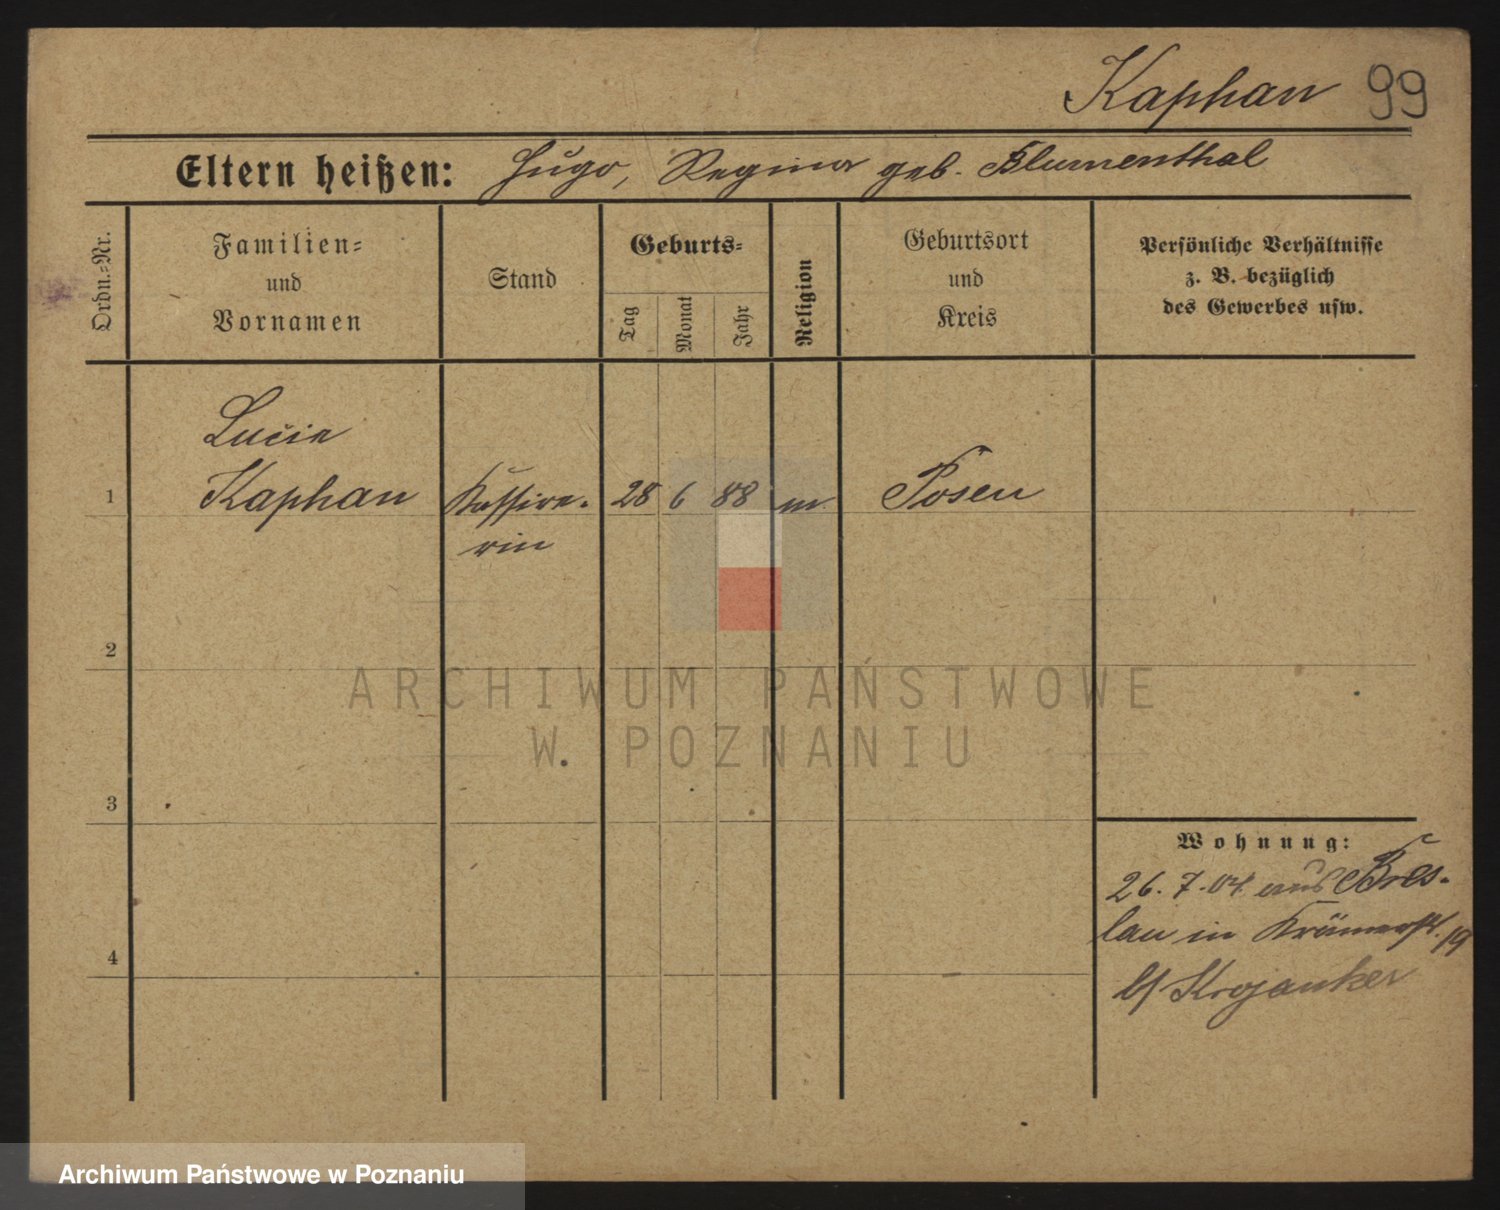 Kaphan 99
Eltern heißen: Hugo, Regina geb. Blumenthal
Ordn.=Nr.
Familien=
und
Vornamen
Stand
Geburts=
Tag
Monat
Jahr
Religion
Geburtsort
und
Kreis
Persönliche Verhältnisse
z. B. bezüglich
des Gewerbes usw.
Lucie
1 Kaphan Kassire- 28 6 88 m Posen
rin
2
3
4
Wohnung:
26.7.04 aus Bres-
lau in Krämerstr. 19
b/ Krojanker
ARCHIWUM PAŃSTWOWE
W POZNANIU
Archiwum Państwowe w Poznaniu